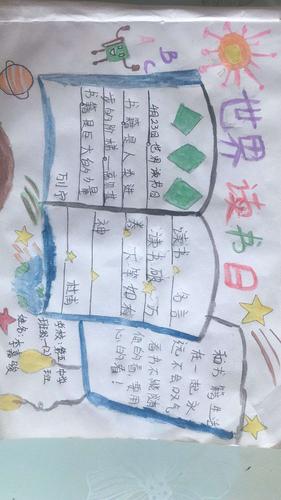 世界读书日
A B C
4月23日世界读书日
书籍是人类进
步的阶梯。高尔基
书籍是巨大的力量
列宁
读书 名言
读书破万
卷，下笔如有
神
杜甫
和书籍生活
在一起，永
远不会叹气
看书不能随
便的看，要用
心的看！
学校：第五中学
班级：一（2）班